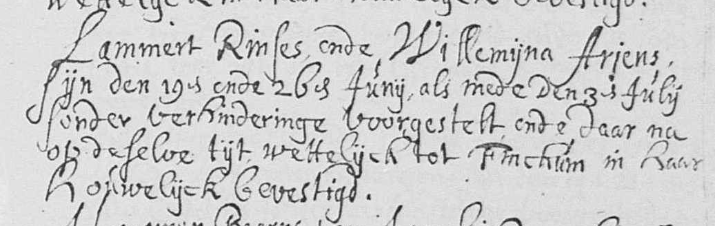 Lammert Rinses, ende, Willemijna Arjens,
sijn den 19es ende 26es Junij, als mede den 3es Julij
sonder verhinderinge voorgestelt, ende daar na
op deselve tijt wettelijck tot Finchum in haar
houwelijck bevestigd.